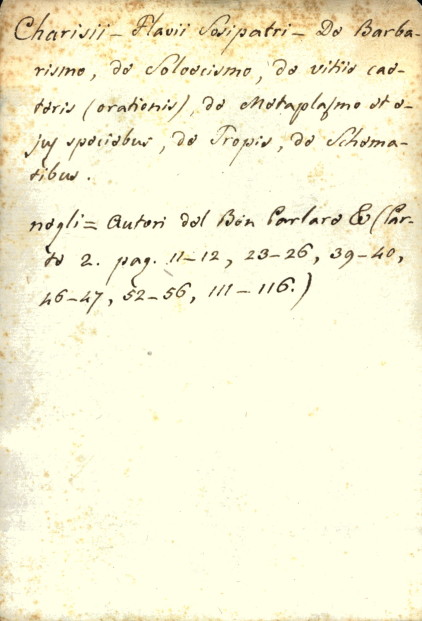 Charisii - Flavii Sosipatri - De Barba-
rismo, de Soloecismo, de vitiis cae-
teris (orationis), de Metaplasmo et e-
jus speciebus, de Tropis, de Schema-
tibus.
negli = Autori del Ben Parlare & (Par-
te 2. pag. 11-12, 23-26, 39-40,
46-47, 52-56, 111-116.)